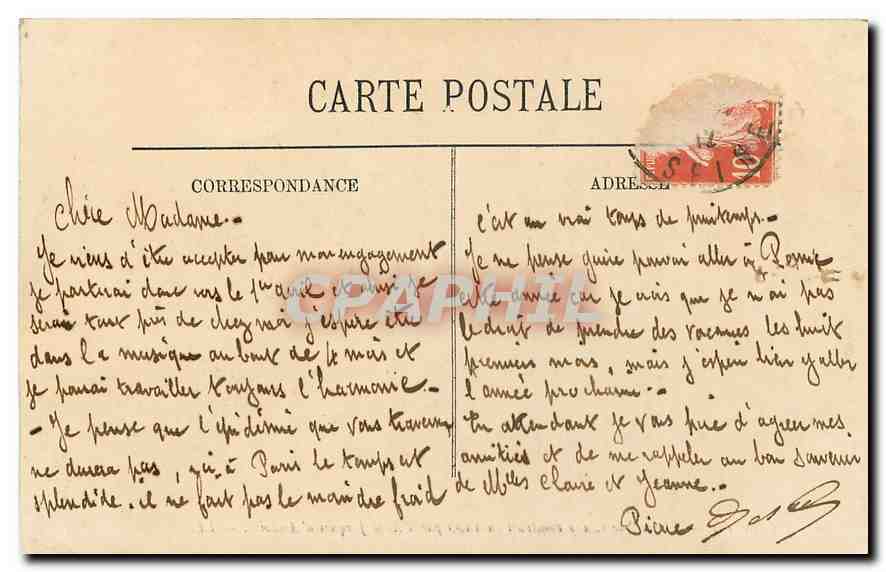 CARTE POSTALE
CORRESPONDANCE
ADRESSE
Chère Madame.-
Je viens d'être accepter pour mon engagement
je partirai donc vers le 1er avril et ainsi je
serai tout près de chez moi j'espère être
dans la musique au bout de 4 mois et
je pourai travailler toujours l'harmonie.-
- Je pense que l'épidémie que vous traversez
ne durera pas, ici à Paris le temps est
splendide. il ne fait pas le moindre froid
c'est un vrai temps de printemps.-
Je ne pense guère pouvoir aller à
cette année car je crois que je n'ai pas
le droit de prendre des vacances les huit
premiers mois, mais j'espère bien y aller
l'année prochaine.-
En attendant je vous prie d'agréer mes
amitiés et de me rappeler au bon souvenir
de Melles Claire et Jeanne.-
Pierre
CPAPHIL
10
SEINE